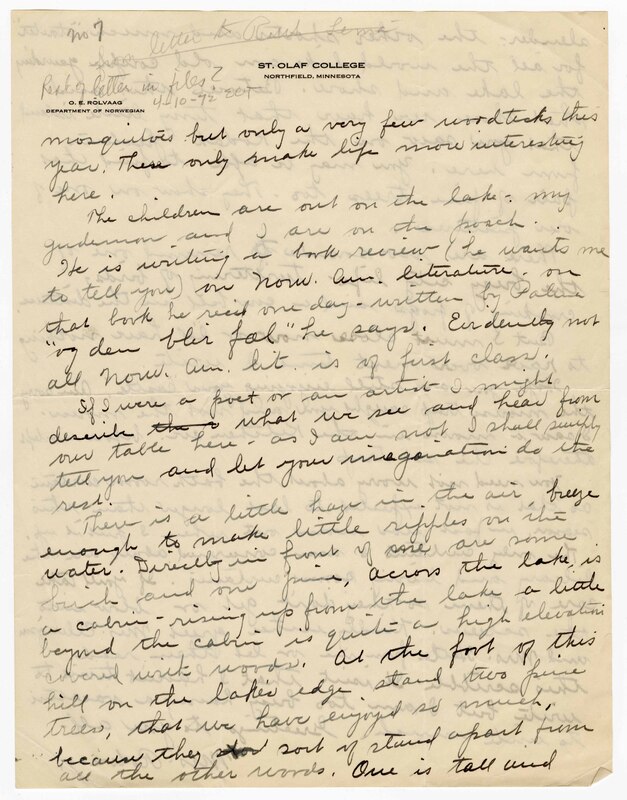 no 7
letter to Ruth
ST. OLAF COLLEGE
NORTHFIELD, MINNESOTA
Rest of letter in files?
4-10-72 EOT
O. E. ROLVAAG
DEPARTMENT OF NORWEGIAN
mosquitoes but only a very few woodticks this
year. These only make life more interesting
here.
The children are out on the lake - my
gudemon and I are on the porch.
He is writing a book review (he wants me
to tell you) on Norw. Am. literature - on
that book he reid one day - written by
"og den blir fal" he says. Evidently not
all Norw. Am. lit. is of first class.
If I were a poet or an artist I might
describe what we see and hear from
our table here - as I am not I shall simply
tell you and let your imagenation do the
rest.
There is a little haze in the air, breeze
enough to make little ripples on the
water. Directly in front of me are some
birch and one pine, across the lake, is
a cabin - rising up from the lake a little
beyond the cabin is quite a high elevation
covered with woods. At the foot of this
hill on the lake's edge stand two pine
trees, that we have enjoyed so much,
because they sort of stand apart from
all the other woods. One is tall and